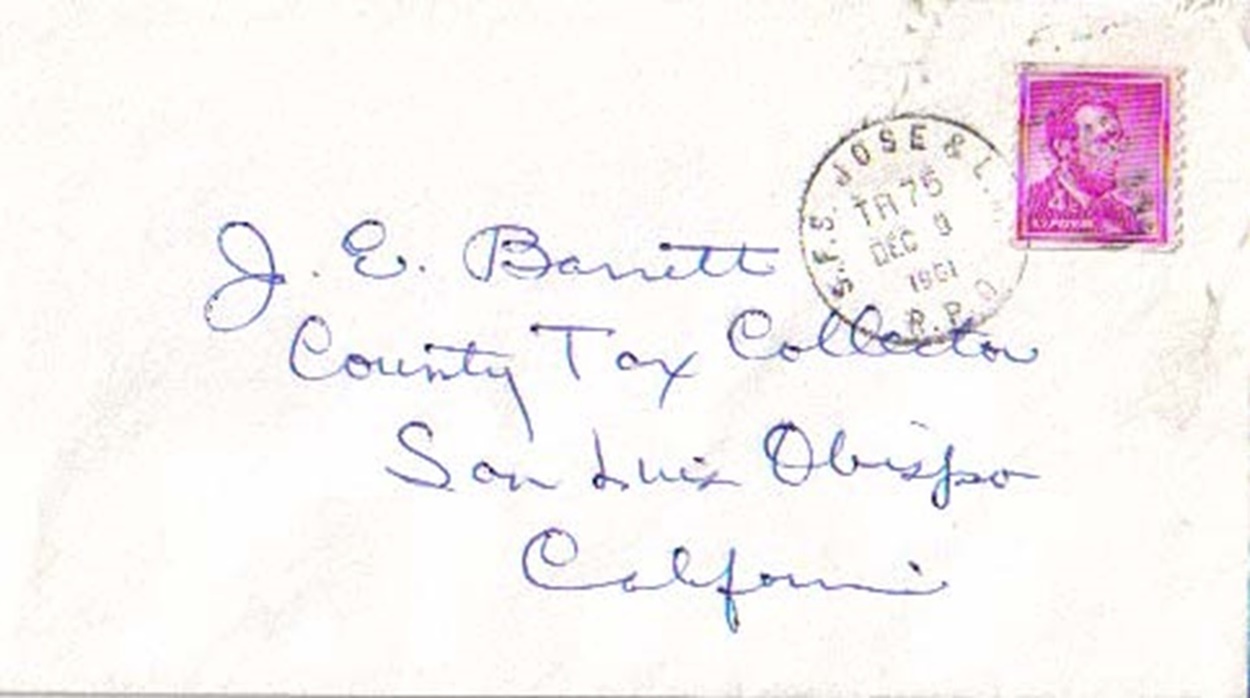 S.F.S. JOSE & L.
TR 75
DEC 9
1961
R.P.O.
J. E. Barrett
County Tax Collector
San Luis Obispo
California